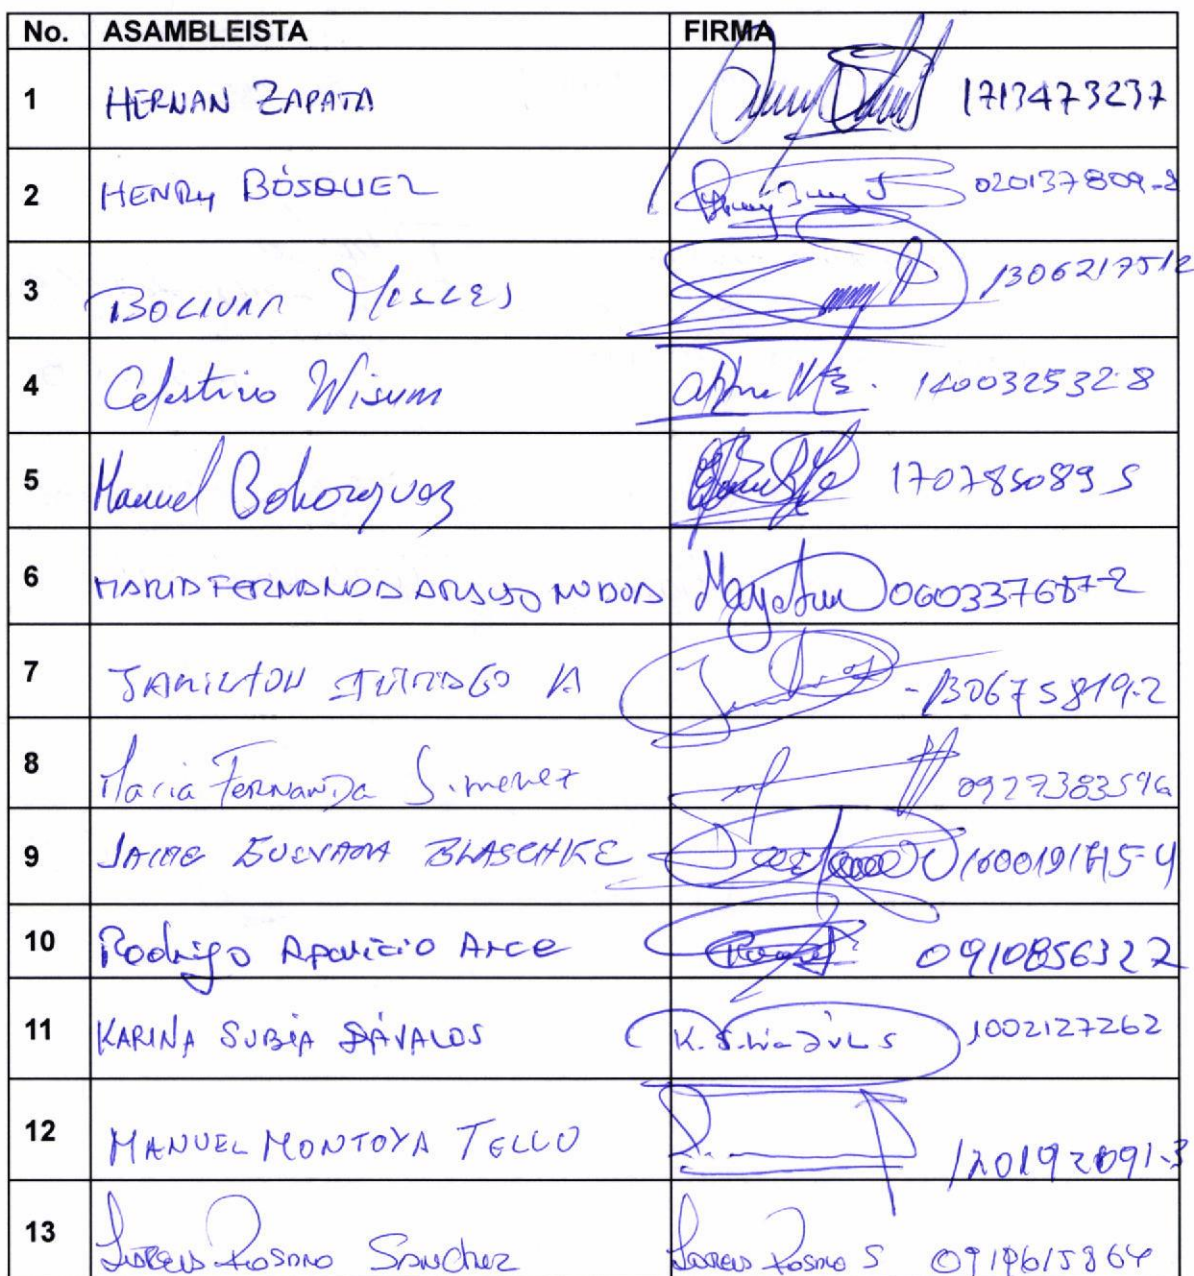 No. ASAMBLEISTA FIRMA
1 HERNAN ZAPATA 1713473237
2 HENRY BÓSQUEZ 020137809-2
3 BOLIVAR 1306217512
4 Celestino Wisum 140032532-8
5 Manuel Bohorquez 170785089 5
6 MARIA FERNANDA ARAUJO 060337687-2
7 130675819-2
8 Maria Fernanda Jimenez
9 JAIME GUEVARA BLASCHKE 160019175-4
10 Rodrigo Aparicio Arce 0910856322
11 KARINA SUBIA DÁVALOS 1002127262
12 MANUEL MONTOYA TELLO 120192091-3
13 Rosero Sanchez Rosero S